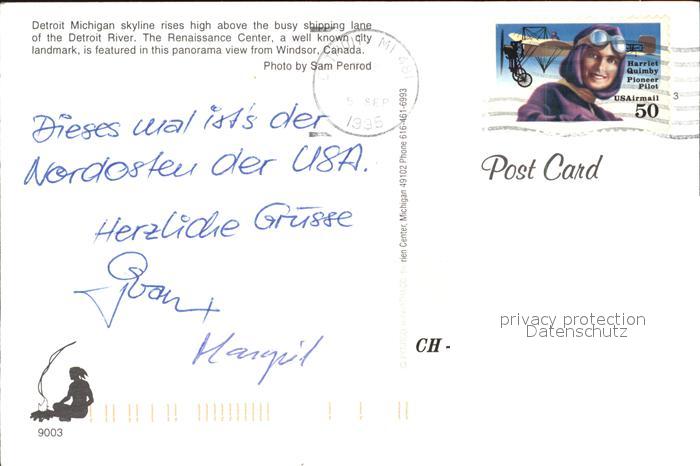 Detroit Michigan skyline rises high above the busy shipping lane
of the Detroit River. The Renaissance Center, a well known city
landmark, is featured in this panorama view from Windsor, Canada.
Photo by Sam Penrod
MI
5 SEP
1995
Harriet
Quimby
Pioneer
Pilot
USAirmail
50
3
Post Card
Dieses mal ist's der
Nordosten der USA.
Herzliche Grüsse
Margrit
rien Center, Michigan 49102 Phone 616-461-6993
CH -
privacy protection
Datenschutz
9003